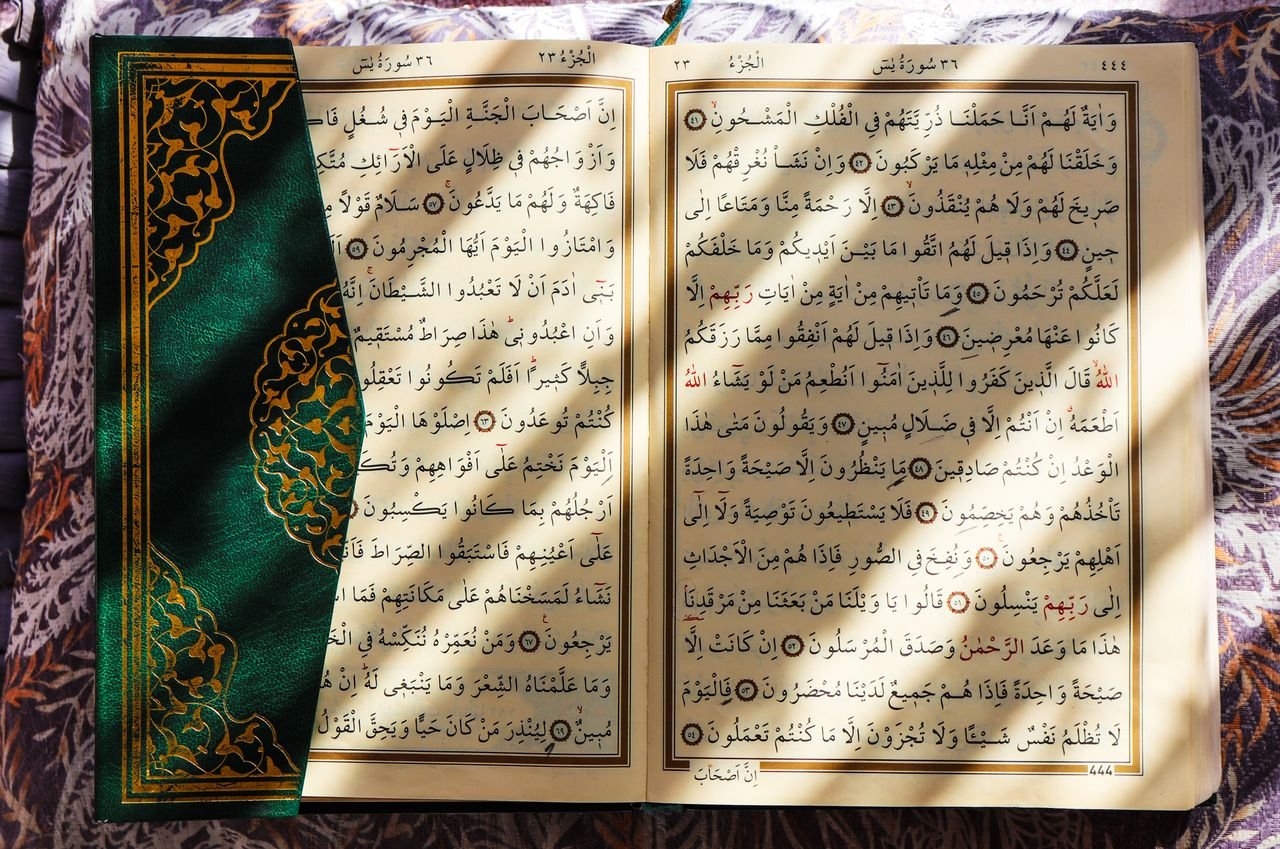 ٤٤٤ ٣٦ سُورَةُ يٰسٓ اَلْجُزْءُ ٢٣
وَاٰيَةٌ لَهُمْ اَنَّا حَمَلْنَا ذُرِّيَّتَهُمْ فِي الْفُلْكِ الْمَشْحُونِۙ ﴿٤١﴾
وَخَلَقْنَا لَهُمْ مِنْ مِثْلِه۪ مَا يَرْكَبُونَ ﴿٤٢﴾ وَاِنْ نَشَأْ نُغْرِقْهُمْ فَلَا
صَر۪يخَ لَهُمْ وَلَا هُمْ يُنْقَذُونَۙ ﴿٤٣﴾ اِلَّا رَحْمَةً مِنَّا وَمَتَاعًا اِلٰى
ح۪ينٍ ﴿٤٤﴾ وَاِذَا ق۪يلَ لَهُمُ اتَّقُوا مَا بَيْنَ اَيْد۪يكُمْ وَمَا خَلْفَكُمْ
لَعَلَّكُمْ تُرْحَمُونَ ﴿٤٥﴾ وَمَا تَأْت۪يهِمْ مِنْ اٰيَةٍ مِنْ اٰيَاتِ رَبِّهِمْ اِلَّا
كَانُوا عَنْهَا مُعْرِض۪ينَ ﴿٤٦﴾ وَاِذَا ق۪يلَ لَهُمْ اَنْفِقُوا مِمَّا رَزَقَكُمُ
اللّٰهُۙ قَالَ الَّذ۪ينَ كَفَرُوا لِلَّذ۪ينَ اٰمَنُٓوا اَنُطْعِمُ مَنْ لَوْ يَشَٓاءُ اللّٰهُ
اَطْعَمَهُۗ اِنْ اَنْتُمْ اِلَّا ف۪ي ضَلَالٍ مُب۪ينٍ ﴿٤٧﴾ وَيَقُولُونَ مَتٰى هٰذَا
الْوَعْدُ اِنْ كُنْتُمْ صَادِق۪ينَ ﴿٤٨﴾ مَا يَنْظُرُونَ اِلَّا صَيْحَةً وَاحِدَةً
تَأْخُذُهُمْ وَهُمْ يَخِصِّمُونَ ﴿٤٩﴾ فَلَا يَسْتَط۪يعُونَ تَوْصِيَةً وَلَٓا اِلٰٓى
اَهْلِهِمْ يَرْجِعُونَ۟ ﴿٥٠﴾ وَنُفِخَ فِي الصُّورِ فَاِذَا هُمْ مِنَ الْاَجْدَاثِ
اِلٰى رَبِّهِمْ يَنْسِلُونَ ﴿٥١﴾ قَالُوا يَا وَيْلَنَا مَنْ بَعَثَنَا مِنْ مَرْقَدِنَا
هٰذَا مَا وَعَدَ الرَّحْمٰنُ وَصَدَقَ الْمُرْسَلُونَ ﴿٥٢﴾ اِنْ كَانَتْ اِلَّا
صَيْحَةً وَاحِدَةً فَاِذَا هُمْ جَم۪يعٌ لَدَيْنَا مُحْضَرُونَ ﴿٥٣﴾ فَالْيَوْمَ
لَا تُظْلَمُ نَفْسٌ شَيْـًٔا وَلَا تُجْزَوْنَ اِلَّا مَا كُنْتُمْ تَعْمَلُونَ ﴿٥٤﴾
444
اِنَّ اَصْحَابَ
اَلْجُزْءُ ٢٣ ٣٦ سُورَةُ يٰسٓ
اِنَّ اَصْحَابَ الْجَنَّةِ الْيَوْمَ ف۪ي شُغُلٍ
وَاَزْوَاجُهُمْ ف۪ي ظِلَالٍ عَلَى الْاَرَٓائِكِ
فَاكِهَةٌ وَلَهُمْ مَا يَدَّعُونَۚ ﴿٥٧﴾ سَلَامٌ قَوْلًا
وَامْتَازُوا الْيَوْمَ اَيُّهَا الْمُجْرِمُونَ ﴿٥٩﴾
بَن۪ٓي اٰدَمَ اَنْ لَا تَعْبُدُوا الشَّيْطَانَۚ اِنَّهُ
وَاَنِ اعْبُدُون۪يۜ هٰذَا صِرَاطٌ مُسْتَق۪يمٌ
جِبِلًّا كَث۪يرًاۜ اَفَلَمْ تَكُونُوا
كُنْتُمْ تُوعَدُونَ ﴿٦٣﴾ اِصْلَوْهَا الْيَوْمَ
اَلْيَوْمَ نَخْتِمُ عَلٰٓى اَفْوَاهِهِمْ
اَرْجُلُهُمْ بِمَا كَانُوا يَكْسِبُونَ
عَلٰٓى اَعْيُنِهِمْ فَاسْتَبَقُوا الصِّرَاطَ
نَشَٓاءُ لَمَسَخْنَاهُمْ عَلٰى مَكَانَتِهِمْ فَمَا
يَرْجِعُونَ۟ ﴿٦٧﴾ وَمَنْ نُعَمِّرْهُ نُنَكِّسْهُ فِي
وَمَا عَلَّمْنَاهُ الشِّعْرَ وَمَا يَنْبَغ۪ي لَهُۜ اِنْ
مُب۪ينٌۙ ﴿٦٩﴾ لِيُنْذِرَ مَنْ كَانَ حَيًّا وَيَحِقَّ الْقَوْلُ